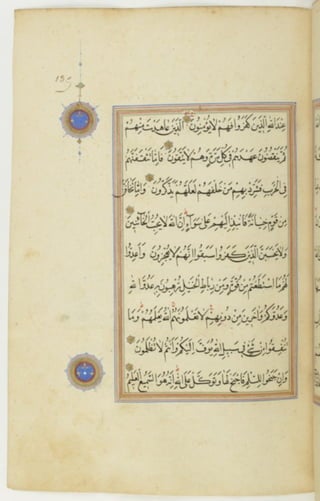 عِنْدَ اللهِ الَّذِينَ كَفَرُوا فَهُمْ لَا يُؤْمِنُونَ الَّذِينَ عَاهَدْتَ مِنْهُمْ
ثُمَّ يَنْقُضُونَ عَهْدَهُمْ فِي كُلِّ مَرَّةٍ وَهُمْ لَا يَتَّقُونَ فَإِمَّا تَثْقَفَنَّهُمْ
فِي الْحَرْبِ فَشَرِّدْ بِهِمْ مَنْ خَلْفَهُمْ لَعَلَّهُمْ يَذَّكَّرُونَ وَإِمَّا تَخَافَنَّ
مِنْ قَوْمٍ خِيَانَةً فَانْبِذْ إِلَيْهِمْ عَلَى سَوَاءٍ إِنَّ اللهَ لَا يُحِبُّ الْخَائِنِينَ
وَلَا يَحْسَبَنَّ الَّذِينَ كَفَرُوا سَبَقُوا إِنَّهُمْ لَا يُعْجِزُونَ وَأَعِدُّوا
لَهُمْ مَا اسْتَطَعْتُمْ مِنْ قُوَّةٍ وَمِنْ رِبَاطِ الْخَيْلِ تُرْهِبُونَ بِهِ عَدُوَّ اللهِ
وَعَدُوَّكُمْ وَآخَرِينَ مِنْ دُونِهِمْ لَا تَعْلَمُونَهُمُ اللهُ يَعْلَمُهُمْ وَمَا
تُنْفِقُوا مِنْ شَيْءٍ فِي سَبِيلِ اللهِ يُوَفَّ إِلَيْكُمْ وَأَنْتُمْ لَا تُظْلَمُونَ
وَإِنْ جَنَحُوا لِلسَّلْمِ فَاجْنَحْ لَهَا وَتَوَكَّلْ عَلَى اللهِ إِنَّهُ هُوَ السَّمِيعُ الْعَلِيمُ